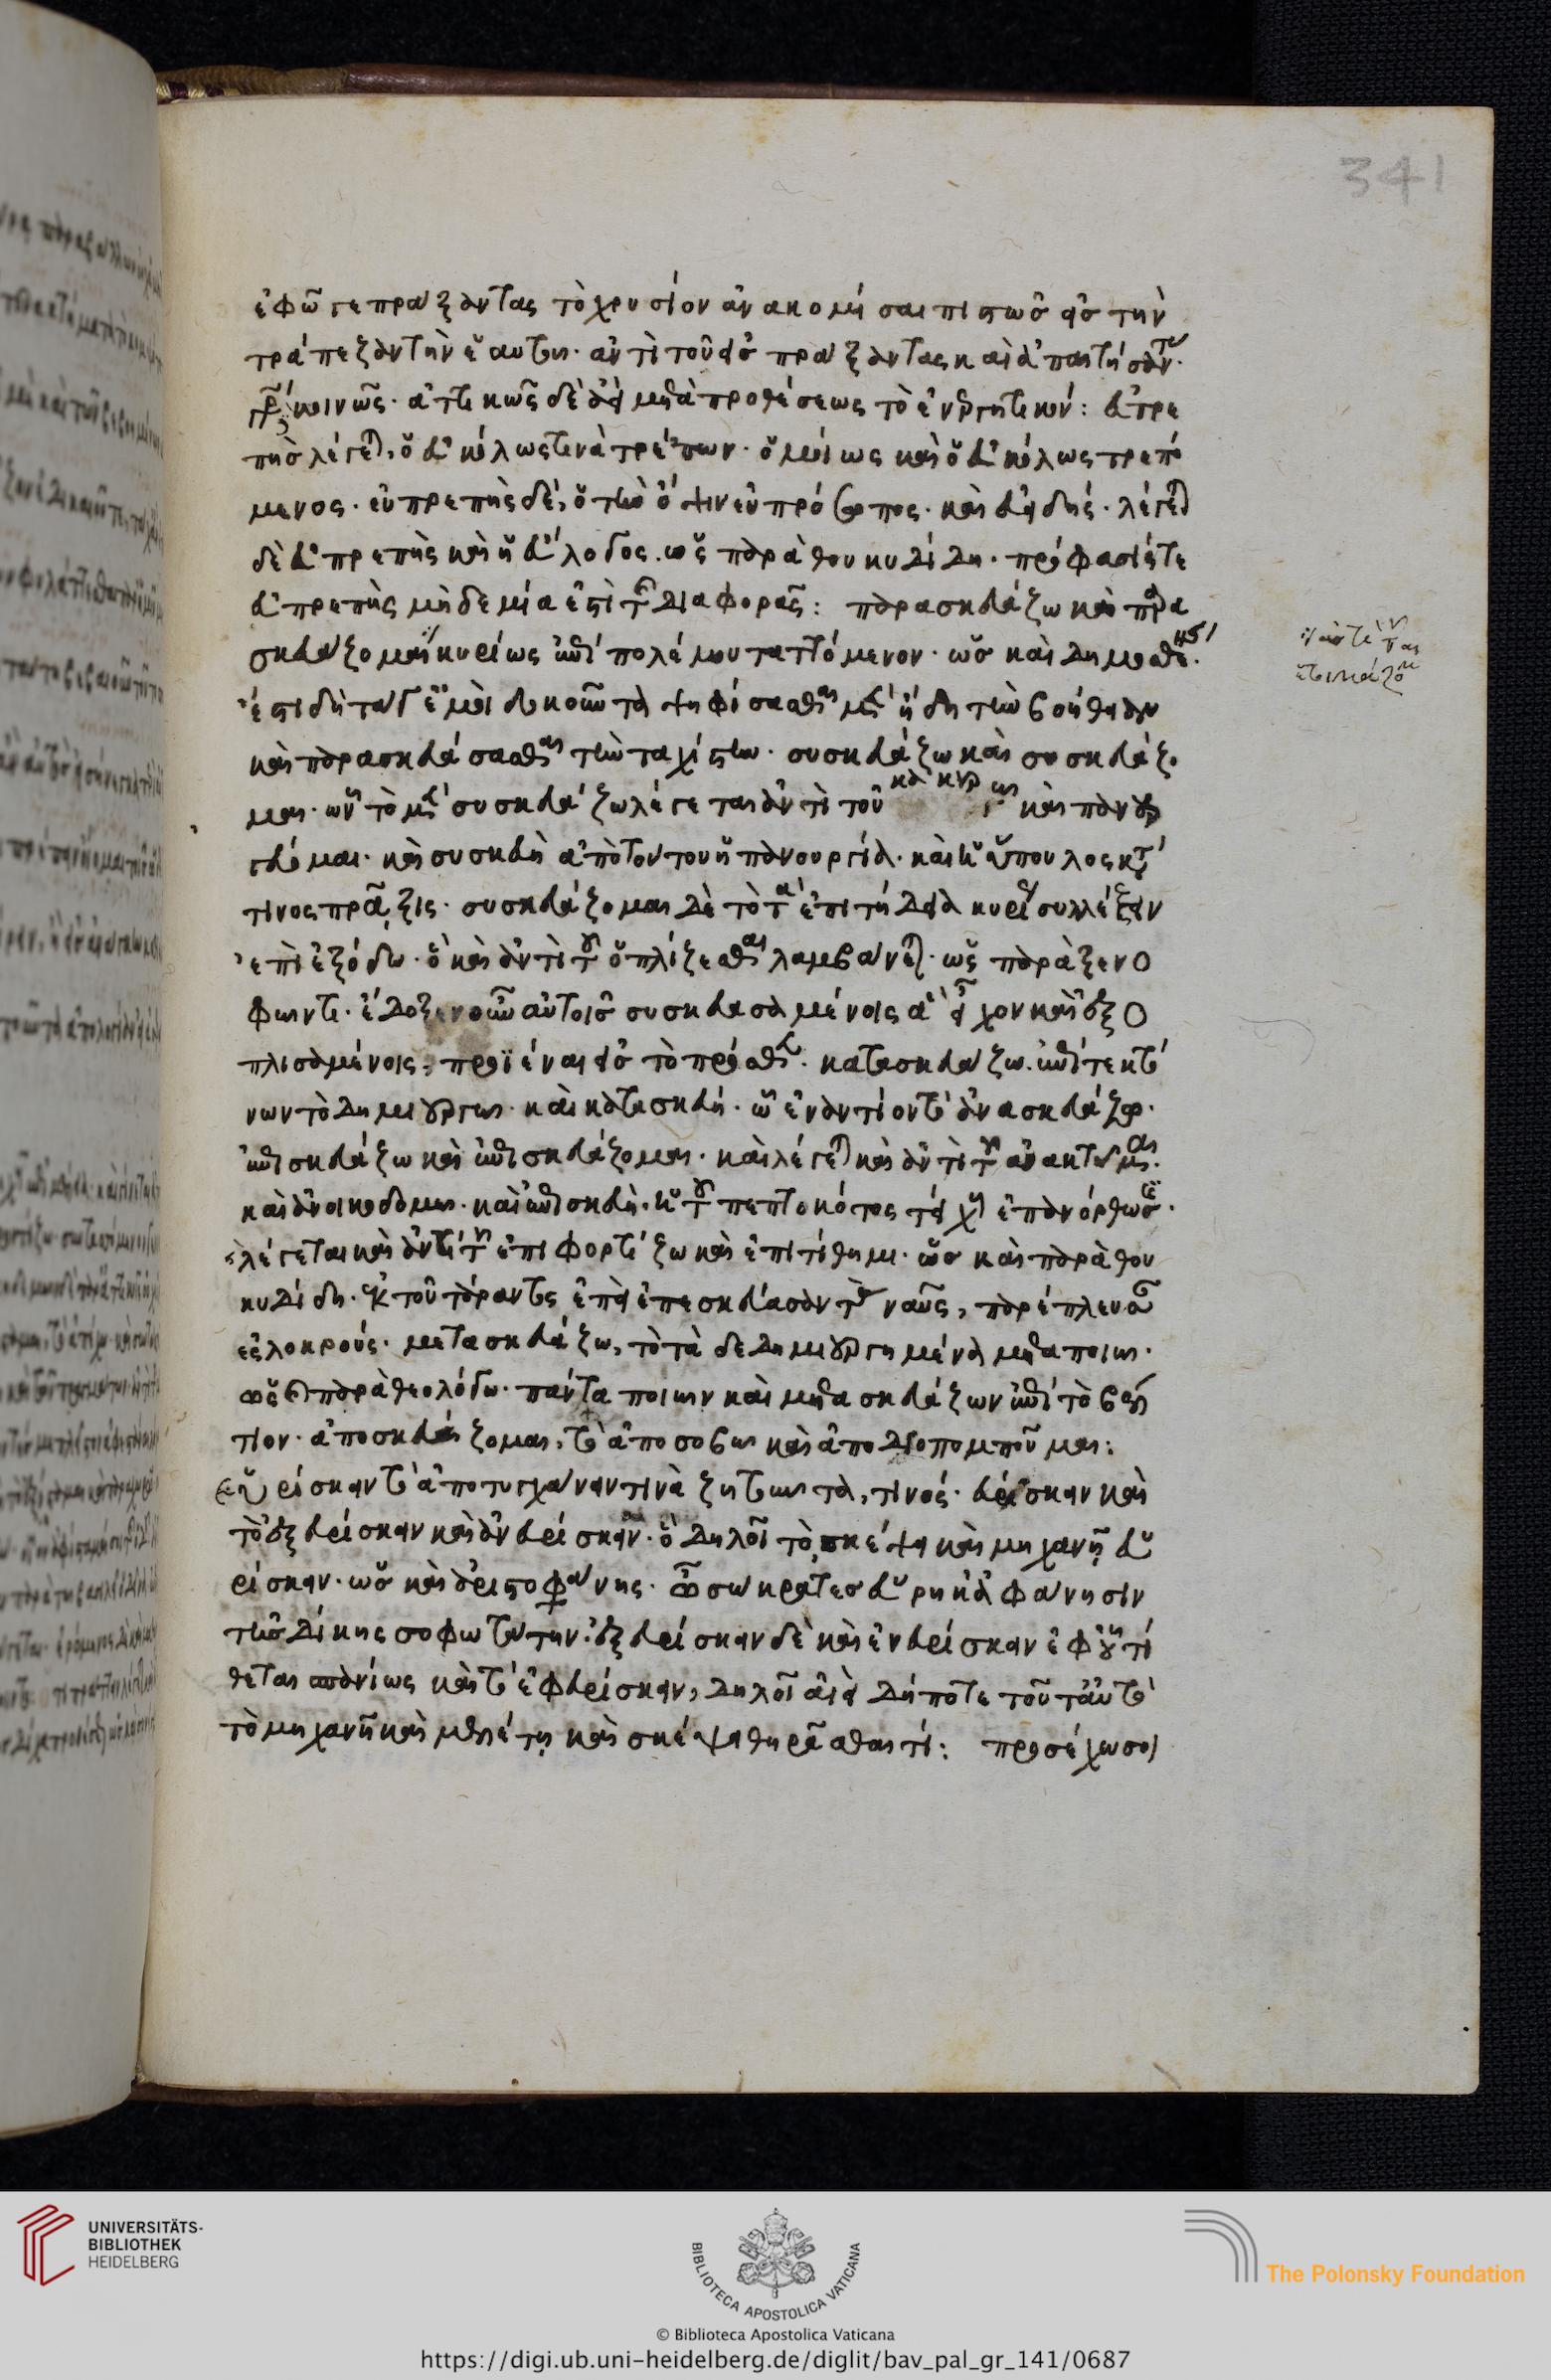 341
ἐφῶ γε πράξαντας τὸ χρυσίον ἀνακομίσαι πίστωσ εἰσ τὴν
τράπεζαν τὴν ἑαυτῶν. ἀντὶ τοῦ εἰσπράξαντας καὶ ἀπαιτήσαν
κοινῶς. ἀττικῶς δὲ ἀεὶ μετὰ προθέσεως τὸ ἐνεργητικόν: εὐτρε
πὴσ λέγεται, ὁ εὐκόλως τινὰ τρέπων. ὁμοίως καὶ ὁ εὐκόλως τρεπό
μενος. εὐπρεπὴς δὲ, ὁ τὴν ὄψιν εὐπρόσωπος. καὶ εὐειδής. λέγεται
δὲ εὐπρεπὴς καὶ ἡ εὔλογος. ὡς παρὰ θουκυδίδη. πρόφασίς τε
εὐπρεπὴς μὴδεμία ἐπὶ τῆς διαφορᾶς: παρασκευάζω καὶ παρα
σκευάζομαι κυρίως ἐπὶ πολέμου ταττόμενον. ὡσ καὶ δημοσθένης.
ἔστι δὴ τάγ' ἐμοὶ δοκοῦντα ψηφίσασθαι μὲν ἤδη τὴν βοήθειαν
καὶ παρασκευάσασθαι τὴν ταχίστην. συσκευάζω καὶ συσκευάζο
μαι. ὧν τὸ μὲν συσκευάζω λέγεται ἀντὶ τοῦ καὶ παν
εύομαι. καὶ συσκευὴ ἀπὸ τούτου ἡ πανουργία. καὶ ἡ ὕπουλος κατά
τινος πρᾶξις. συσκευάζομαι δὲ τὸ τὰ ἐπιτήδεια κυρίως συλλέξειν
ἐπὶ ἐξόδω. ὃ καὶ ἀντὶ τοῦ ὁπλίζεσθαι λαμβάνεται. ὡς παρὰ ξενο
φῶντι. ἔδοξεν οὖν αὐτοῖσ συσκευασαμένοις ἃ εἶχον καὶ ἐξο
πλισαμένοις, προϊέναι εἰσ τὸ πρόσθεν. κατασκευάζω. ἐπὶ τεκτό
νων τὸ δημιουργῶ. καὶ κατασκευή. ᾧ ἐναντίον τὸ ἀνασκευάζειν.
ἐπισκευάζω καὶ ἐπισκευάζομαι. καὶ λέγεται καὶ ἀντὶ τοῦ ἀνακτῶμαι.
καὶ ἀνοικοδομῶ. καὶ ἐπισκευὴ. ἡ τοῦ πεπτωκότος τείχους ἐπανόρθωσις.
λέγεται καὶ ἀντὶ τοῦ ἐπιφορτίζω καὶ ἐπιτίθημι. ὡσ καὶ παρὰ θου
κυδίδη. ἐκ τοῦ τάραντος ἐπεὶ ἐπεσκεύασαν τὰς ναῦς, παρέπλευσαν
ἐς λοκρούς. μετασκευάζω, τὸ τὰ δεδημιουργημένα μεταποιῶ.
ὡς παρὰ θεολόγω. πάντα ποιῶν καὶ μετασκευάζων ἐπὶ τὸ βέλ
τιον. ἀποσκευάζομαι, τὸ ἀποσοβῶ καὶ ἀποδιοπομποῦμαι:
εὑρίσκειν τὸ ἀποτυγχάνειν τινὰ ζητῶντα, τινός. εὑρίσκειν καὶ
τὸ ἐξευρίσκειν καὶ ἀνευρίσκειν. ὃ δηλοῖ τὸ, σκέψει καὶ μηχανῇ εὑ
ρίσκειν. ὡσ καὶ ἀριστοφάνης. ὦ σώκρατεσ εὕρηκ' ἀφάνησιν
τῆσ δίκης σοφωτάτην. ἐξευρίσκειν δὲ καὶ ἐνευρίσκειν ἐφ' οὗ τί
θεται σπανίως καὶ τὸ ἐφευρίσκειν, δηλοῖ ἀεὶ δήποτε τοῦτ' αὐτὸ
τὸ μηχανῇ καὶ μελέτῃ καὶ σκέψει θηρᾶσθαι τί: προσέχω σοι
UNIVERSITÄTS-
BIBLIOTHEK
HEIDELBERG
BIBLIOTECA APOSTOLICA VATICANA
The Polonsky Foundation
© Biblioteca Apostolica Vaticana
https://digi.ub.uni-heidelberg.de/diglit/bav_pal_gr_141/0687